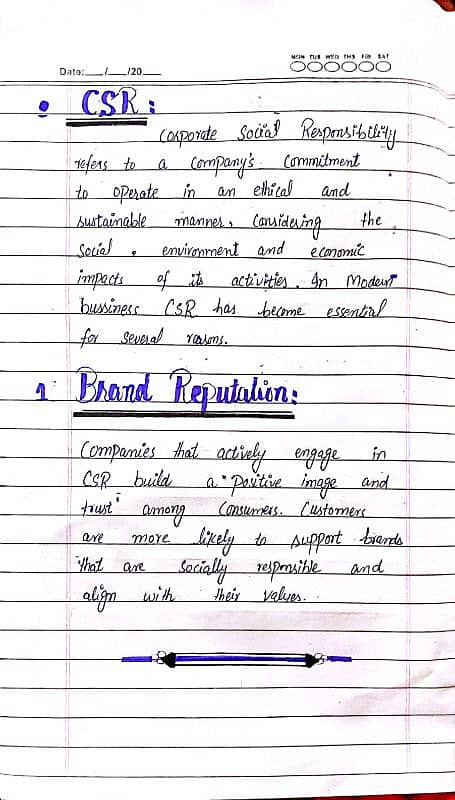 MON TUE WED THS FRI SAT
Date:___/___/20___
• CSR:
Corporate Social Responsibility
refers to a Company's Commitment
to operate in an ethical and
sustainable manner, Considering the
Social, environment and economic
impacts of its activities. In Modern
bussiness CSR has become essential
for several reasons.
1 Brand Reputation:
Companies that actively engage in
CSR build a positive image and
trust among Consumers. Customers
are more likely to support brands
that are socially responsible and
align with their values.